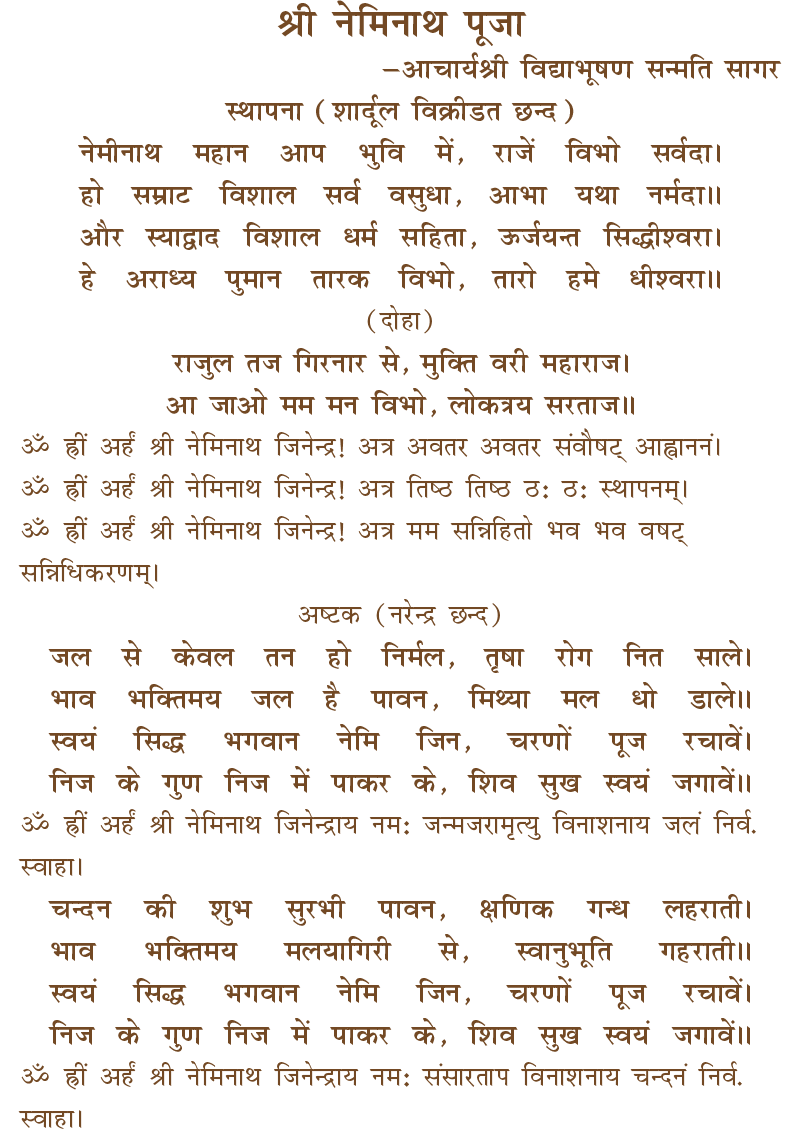 श्री नेमिनाथ पूजा
–आचार्यश्री विद्याभूषण सन्मति सागर
स्थापना (शार्दूल विक्रीडत छन्द)
नेमीनाथ महान आप भुवि में, राजें विभो सर्वदा।
हो सम्राट विशाल सर्व वसुधा, आभा यथा नर्मदा॥
और स्याद्वाद विशाल धर्म सहिता, ऊर्जयन्त सिद्धीश्वरा।
हे अराध्य पुमान तारक विभो, तारो हमे धीश्वरा॥
(दोहा)
राजुल तज गिरनार से, मुक्ति वरी महाराज।
आ जाओ मम मन विभो, लोकत्रय सरताज॥
ॐ ह्रीं अर्हं श्री नेमिनाथ जिनेन्द्र! अत्र अवतर अवतर संवौषट् आह्वाननं।
ॐ ह्रीं अर्हं श्री नेमिनाथ जिनेन्द्र! अत्र तिष्ठ तिष्ठ ठ: ठ: स्थापनम्।
ॐ ह्रीं अर्हं श्री नेमिनाथ जिनेन्द्र! अत्र मम सन्निहितो भव भव वषट्
सन्निधिकरणम्।
अष्टक (नरेन्द्र छन्द)
जल से केवल तन हो निर्मल, तृषा रोग नित साले।
भाव भक्तिमय जल है पावन, मिथ्या मल धो डाले॥
स्वयं सिद्ध भगवान नेमि जिन, चरणों पूज रचावें।
निज के गुण निज में पाकर के, शिव सुख स्वयं जगावें॥
ॐ ह्रीं अर्हं श्री नेमिनाथ जिनेन्द्राय नम: जन्मजरामृत्यु विनाशनाय जलं निर्व.
स्वाहा।
चन्दन की शुभ सुरभी पावन, क्षणिक गन्ध लहराती।
भाव भक्तिमय मलयागिरी से, स्वानुभूति गहराती॥
स्वयं सिद्ध भगवान नेमि जिन, चरणों पूज रचावें।
निज के गुण निज में पाकर के, शिव सुख स्वयं जगावें॥
ॐ ह्रीं अर्हं श्री नेमिनाथ जिनेन्द्राय नम: संसारताप विनाशनाय चन्दनं निर्व.
स्वाहा।